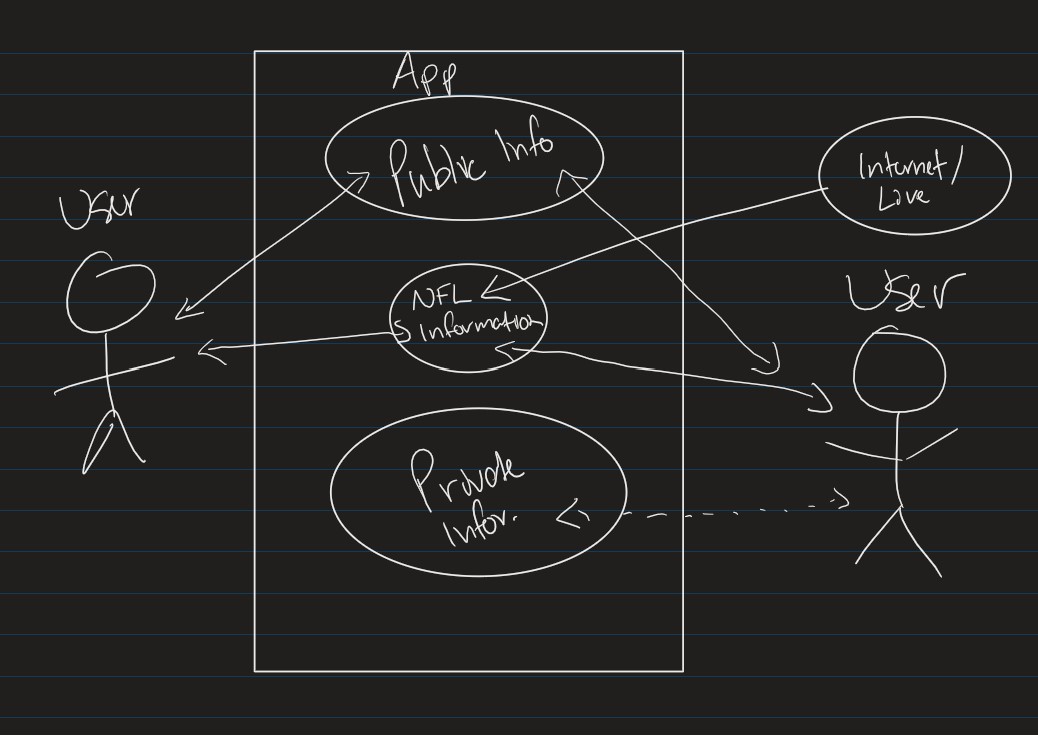 App
Public Info
User
Internet/
Live
NFL
Information
User
Private
Infor.